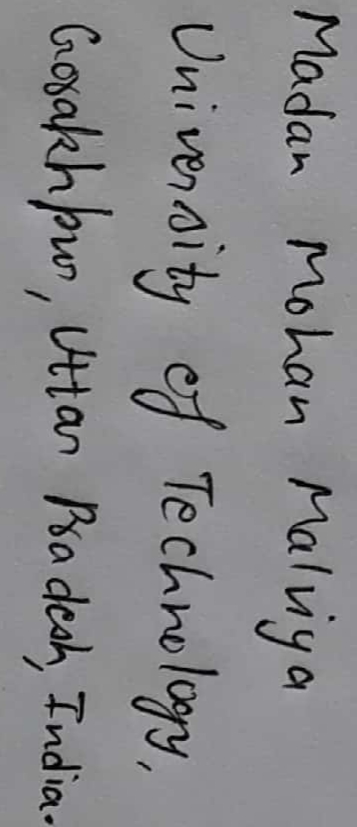 Madan Mohan Malviya
University of Technology,
Gorakhpur, Uttar Pradesh, India.